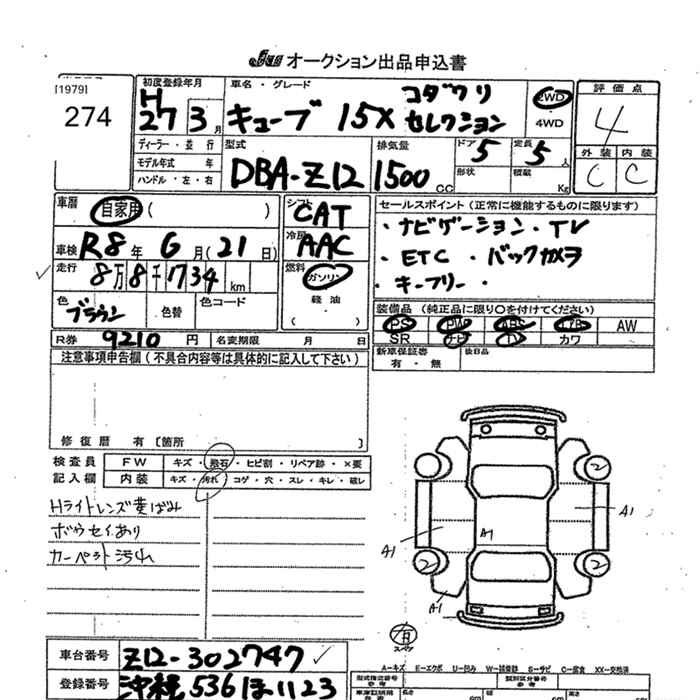 JU オークション出品申込書
[1979]
274
初度登録年月
H
27 3月
車名・グレード
キューブ 15X コダワリ
セレクション
2WD
4WD
評価点
4
外装 内装
C C
ディーラー・並行
モデル年式 年
ハンドル・左・右
型式
DBA-Z12
排気量
1500 CC
ドア
5
定員
5人
形状
積載
Kg
車歴
自家用 ( )
車検 R8年 6月(21日)
走行 8万8千734 km
色
ブラウン
色替
色コード
シフト
CAT
冷房
AAC
燃料
ガソリン
軽油
( )
セールスポイント (正常に機能するものに限ります)
・ナビゲーション・TV
・ETC ・バックカメラ
・キーフリー・
装備品 (純正品に限り○を付けてください)
PS PW ABS エアB AW
SR ナビ TV カワ
R券 9210 円
名変期限 月 日
新車保証書
有・無
後日品
注意事項申告欄(不具合内容等は具体的に記入して下さい)
修復歴 有 [箇所 ]
検査員
記入欄
FW キズ・飛石・ヒビ割・リペア跡・×要
内装 キズ・汚れ・コゲ・穴・スレ・キレ・破レ
Hライトレンズ黄ばみ
ボウセイあり
カーペット汚れ
2 2
A1 A1 A1
2 2
A1
スペア
車台番号 Z12-302747
登録番号 沖縄 536 ほ 1123
A=キズ E=エクボ U=凹み W=波替跡 S=サビ C=腐食 XX=交換済
型式指定番号
類別区分番号
長さ
幅
高さ
cm